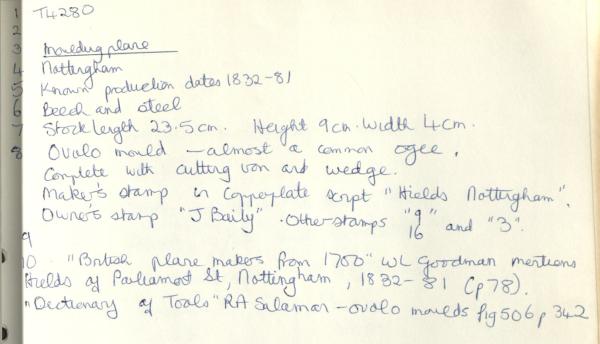 1 T4280
2
3 Moulding plane
4 Nottingham
5 Known production dates 1832-81
6 Beech and steel
7 Stock length 23.5cm. Height 9cm. Width 4cm.
8 Ovolo mould - almost a common ogee.
Complete with cutting iron and wedge.
Maker's stamp in copperplate script "Hields Nottingham".
Owner's stamp "J Baily". Other stamps "9/16" and "3".
9
10 . "British plane makers from 1700" WL Goodman mentions
Hields of Parliament St, Nottingham, 1832-81 (p78).
"Dictionary of Tools" RA Salaman - ovolo moulds fig 506 p 342